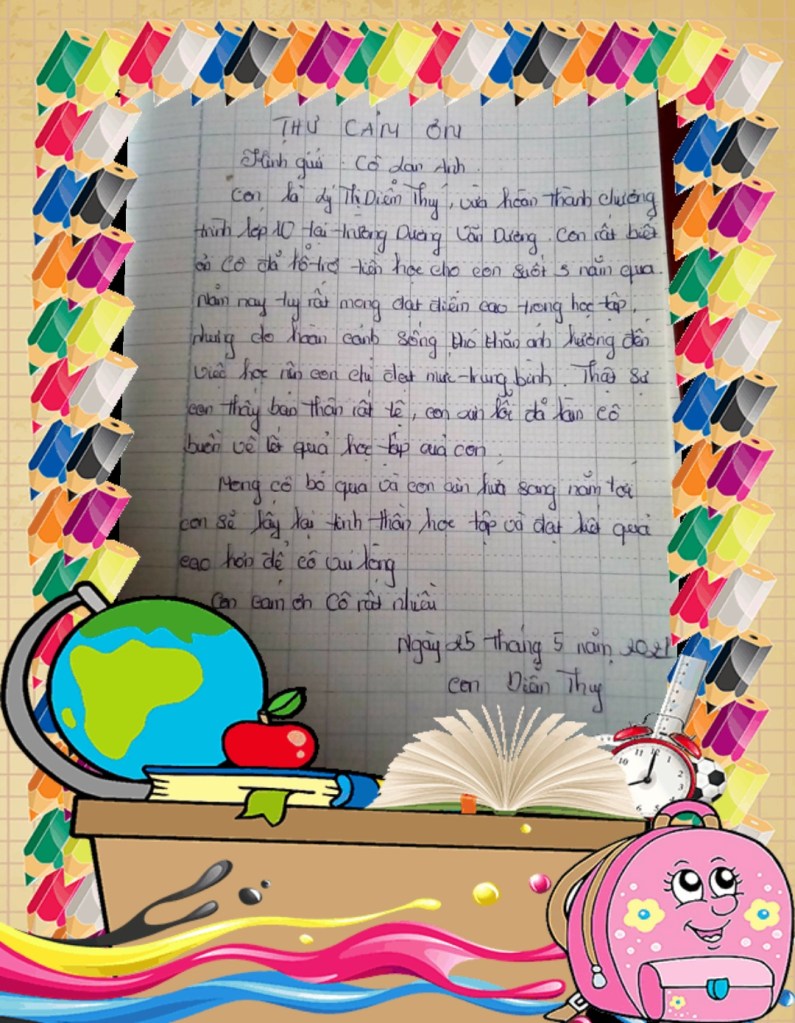 THƯ CẢM ƠN
Kính gửi : Cô Lan Anh.
Con là Lý Thị Diễm Thuý, vừa hoàn thành chương
trình lớp 10 tại trường Dương Văn Dương. Con rất biết
ơn Cô đã hỗ trợ tiền học cho con suốt 5 năm qua.
Năm nay tuy rất mong đạt điểm cao trong học tập,
nhưng do hoàn cảnh sống khó khăn ảnh hưởng đến
việc học nên con chỉ đạt mức trung bình. Thật sự
con thấy bản thân rất tệ, con xin lỗi đã làm cô
buồn về kết quả học tập của con.
Mong cô bỏ qua và con xin hứa sang năm tới
con sẽ lấy lại tinh thần học tập và đạt kết quả
cao hơn để cô vui lòng
Con cám ơn Cô rất nhiều
Ngày 25 tháng 5 năm 2021
Con Diễm Thuý